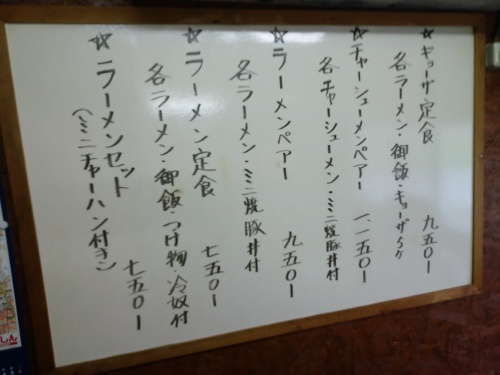 ☆ギョーザ定食
各ラーメン・御飯・ギョーザ5ケ
九五〇ー
☆チャーシューメンペアー
各チャーシューメン・ミニ焼豚丼付
一、一五〇ー
☆ラーメンペアー
各ラーメン・ミニ焼豚丼付
九五〇ー
☆ラーメン定食
各ラーメン・御飯・つけ物・冷奴付
七五〇ー
☆ラーメンセット
(ミニチャーハン付き)
七五〇ー
しん